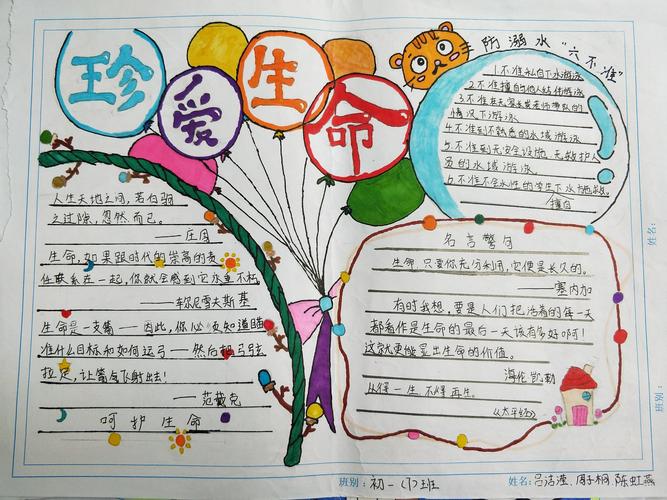 珍爱生命
人生天地之间,若白驹
之过隙,忽然而已。
——庄周
生命,如果跟时代的崇高的责
任联系在一起,你就会感到它永垂不朽。
——车尔尼雪夫斯基
生命是一支箭——因此,你必须知道瞄
准什么目标和如何运弓——然后把弓弦
拉足,让箭飞射出去!
——范戴克
呵护生命
防溺水“六不准”
1.不准私自下水游泳
2.不准擅自与他人结伴游泳
3.不准在无家长或老师带队的
情况下游泳
4.不准到不熟悉的水域游泳
5.不准到无安全设施、无救护人
员的水域游泳
6.不准不会水性的学生下水施救
擅自
名言警句
生命,只要你充分利用,它便是长久的。
——塞内加
有时我想,要是人们把活着的每一天
都看作是生命的最后一天该有多好啊!
这就更能显出生命的价值。
海伦凯勒
人得一生,不得再生。
《太平经》
姓名:
班别:
班别:初一(7)班
姓名:吕洁滢、周子桐、陈虹燕